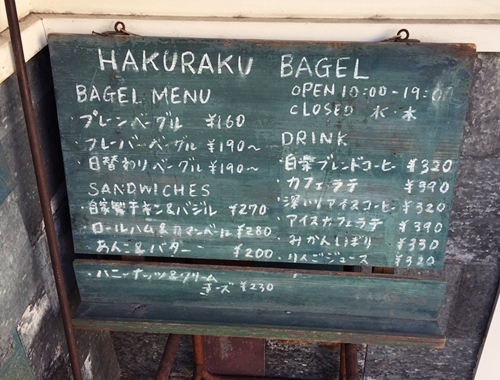 HAKURAKU BAGEL
OPEN 10:00-19:00
CLOSED 水 木
BAGEL MENU
・プレーンベーグル ¥160
・フレーバーベーグル ¥190～
・日替わりベーグル ¥190～
SANDWICHES
・自家製チキン&バジル ¥270
・ロールハム&カマンベール ¥280
・あんこ&バター ¥200
・ハニーナッツ&クリーム
チーズ ¥230
DRINK
・自家ブレンドコーヒー ¥320
・カフェラテ ¥390
・深いりアイスコーヒー ¥320
・アイスカフェラテ ¥390
・みかんしぼり ¥350
・りんごジュース ¥320